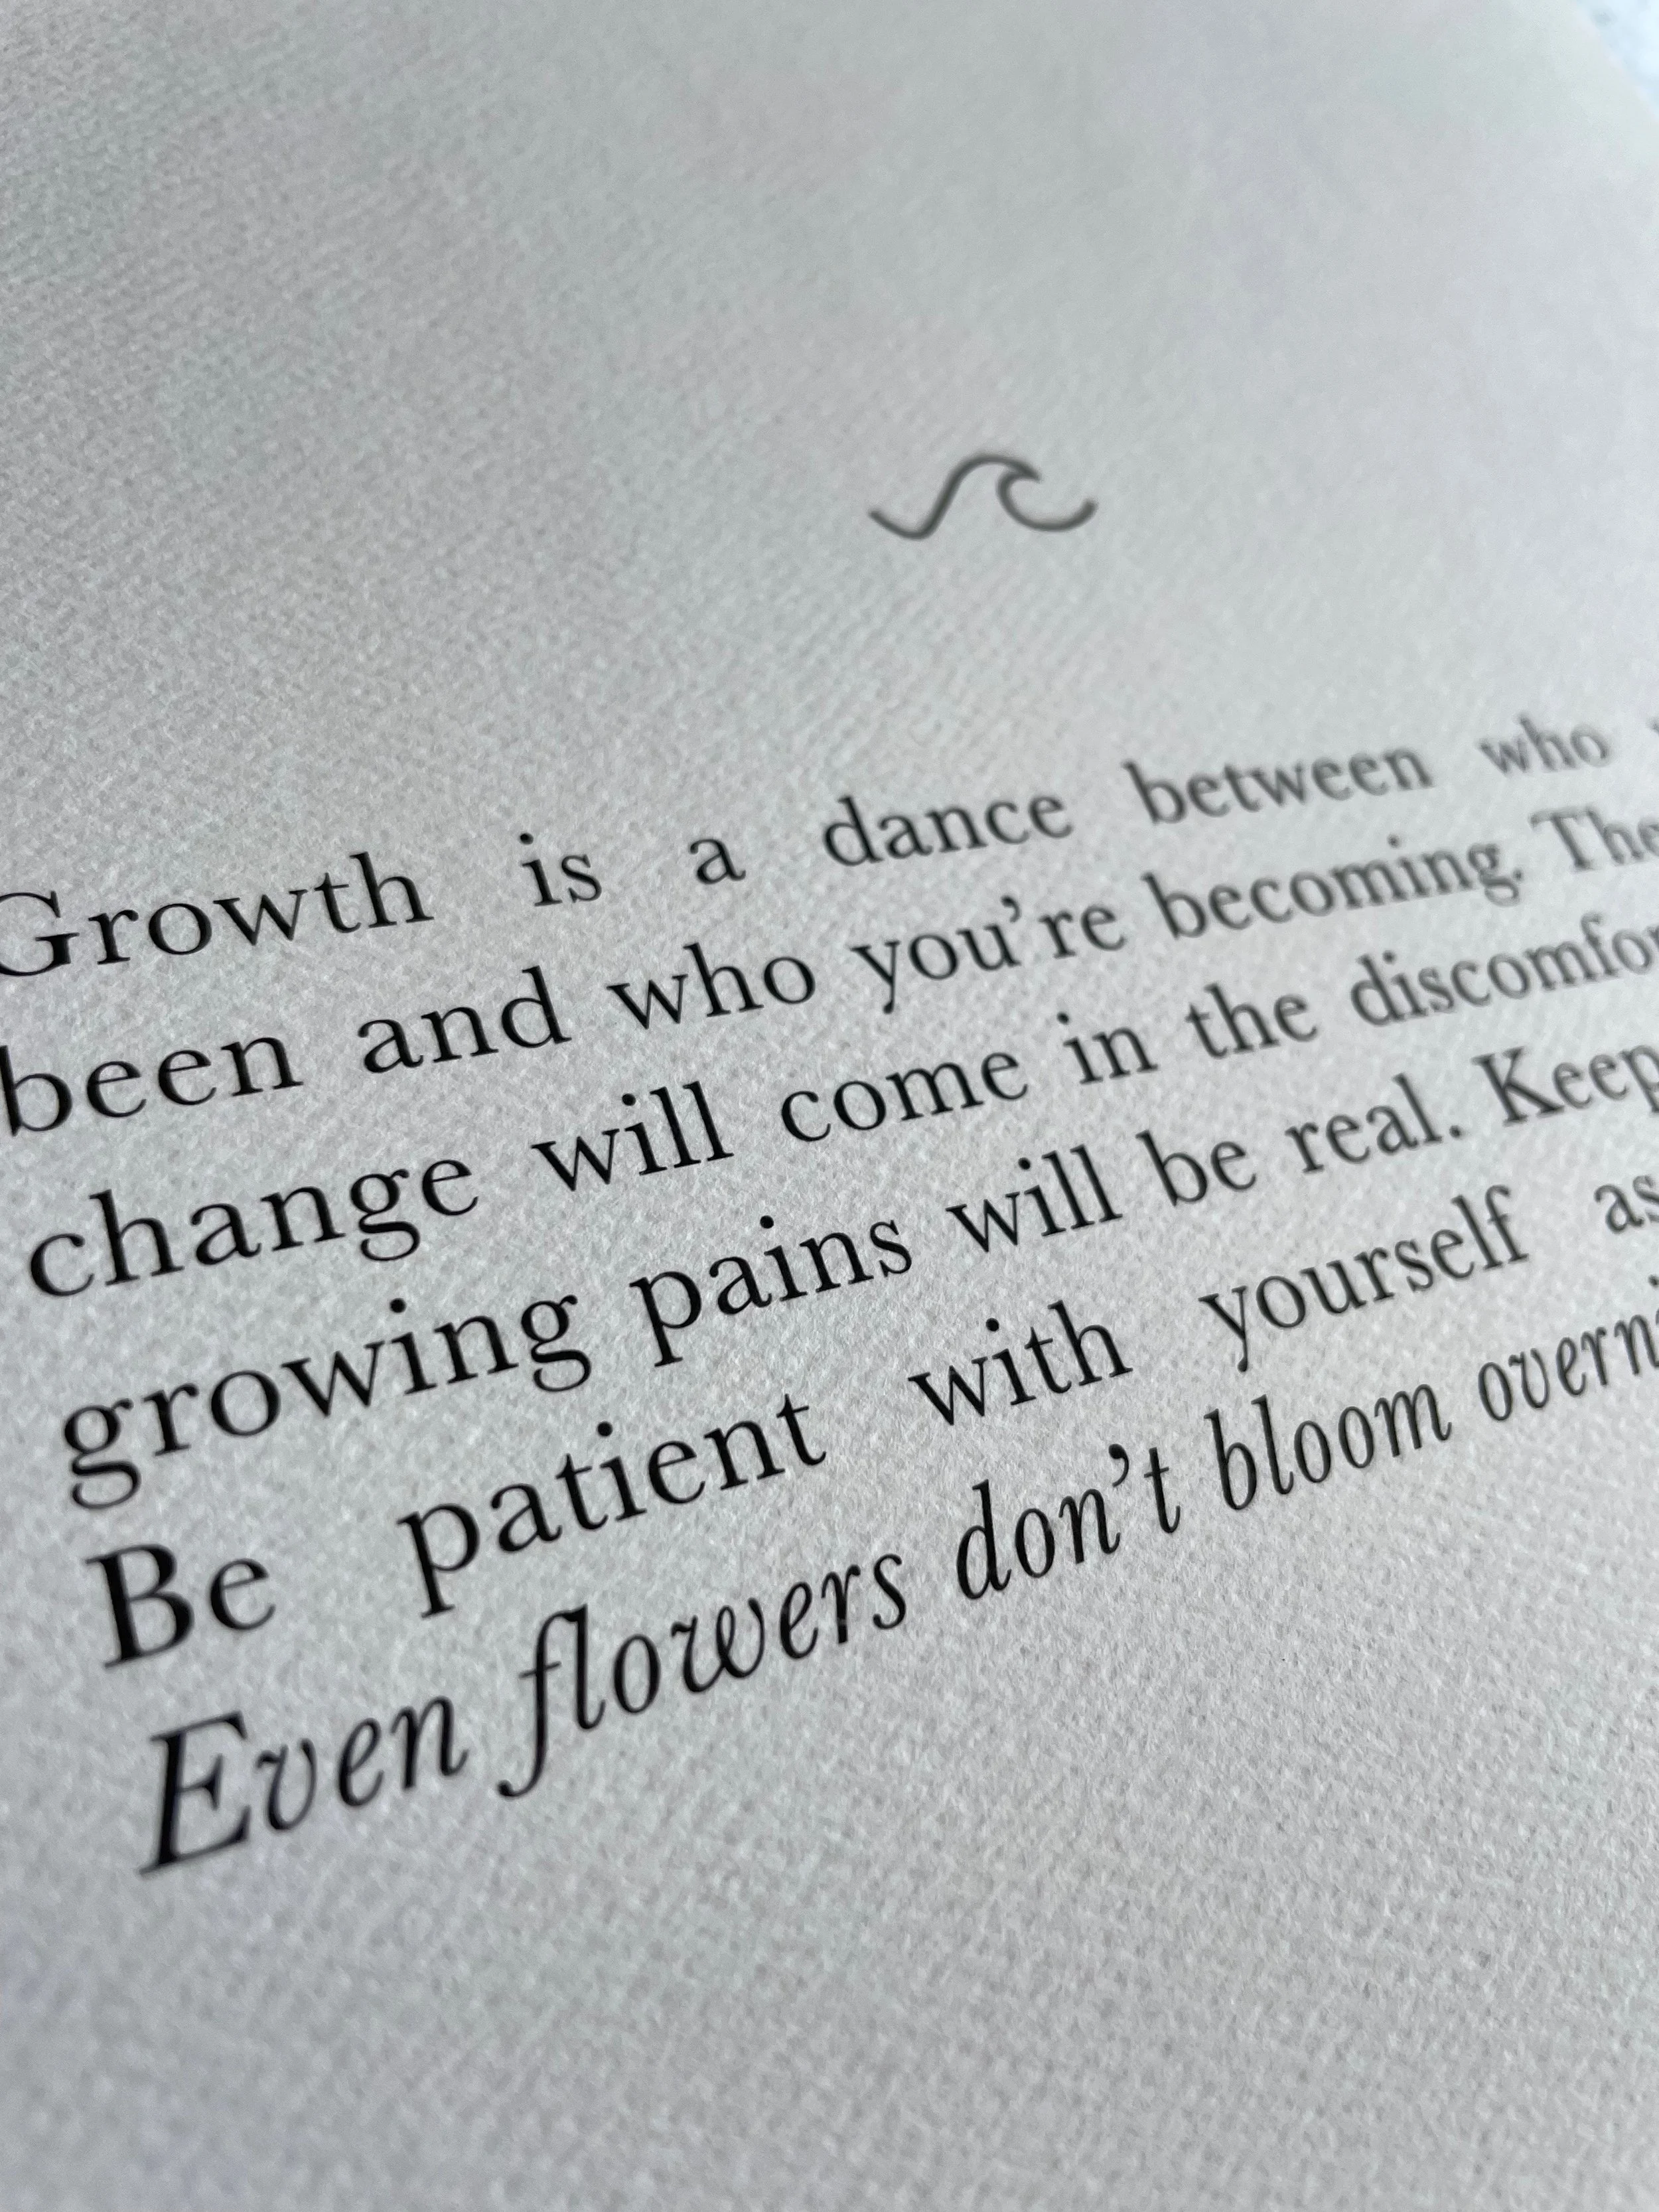 Growth is a dance between who
been and who you're becoming. The
change will come in the
growing pains will be real. Keep
Be patient with yourself as
Even flowers don't bloom